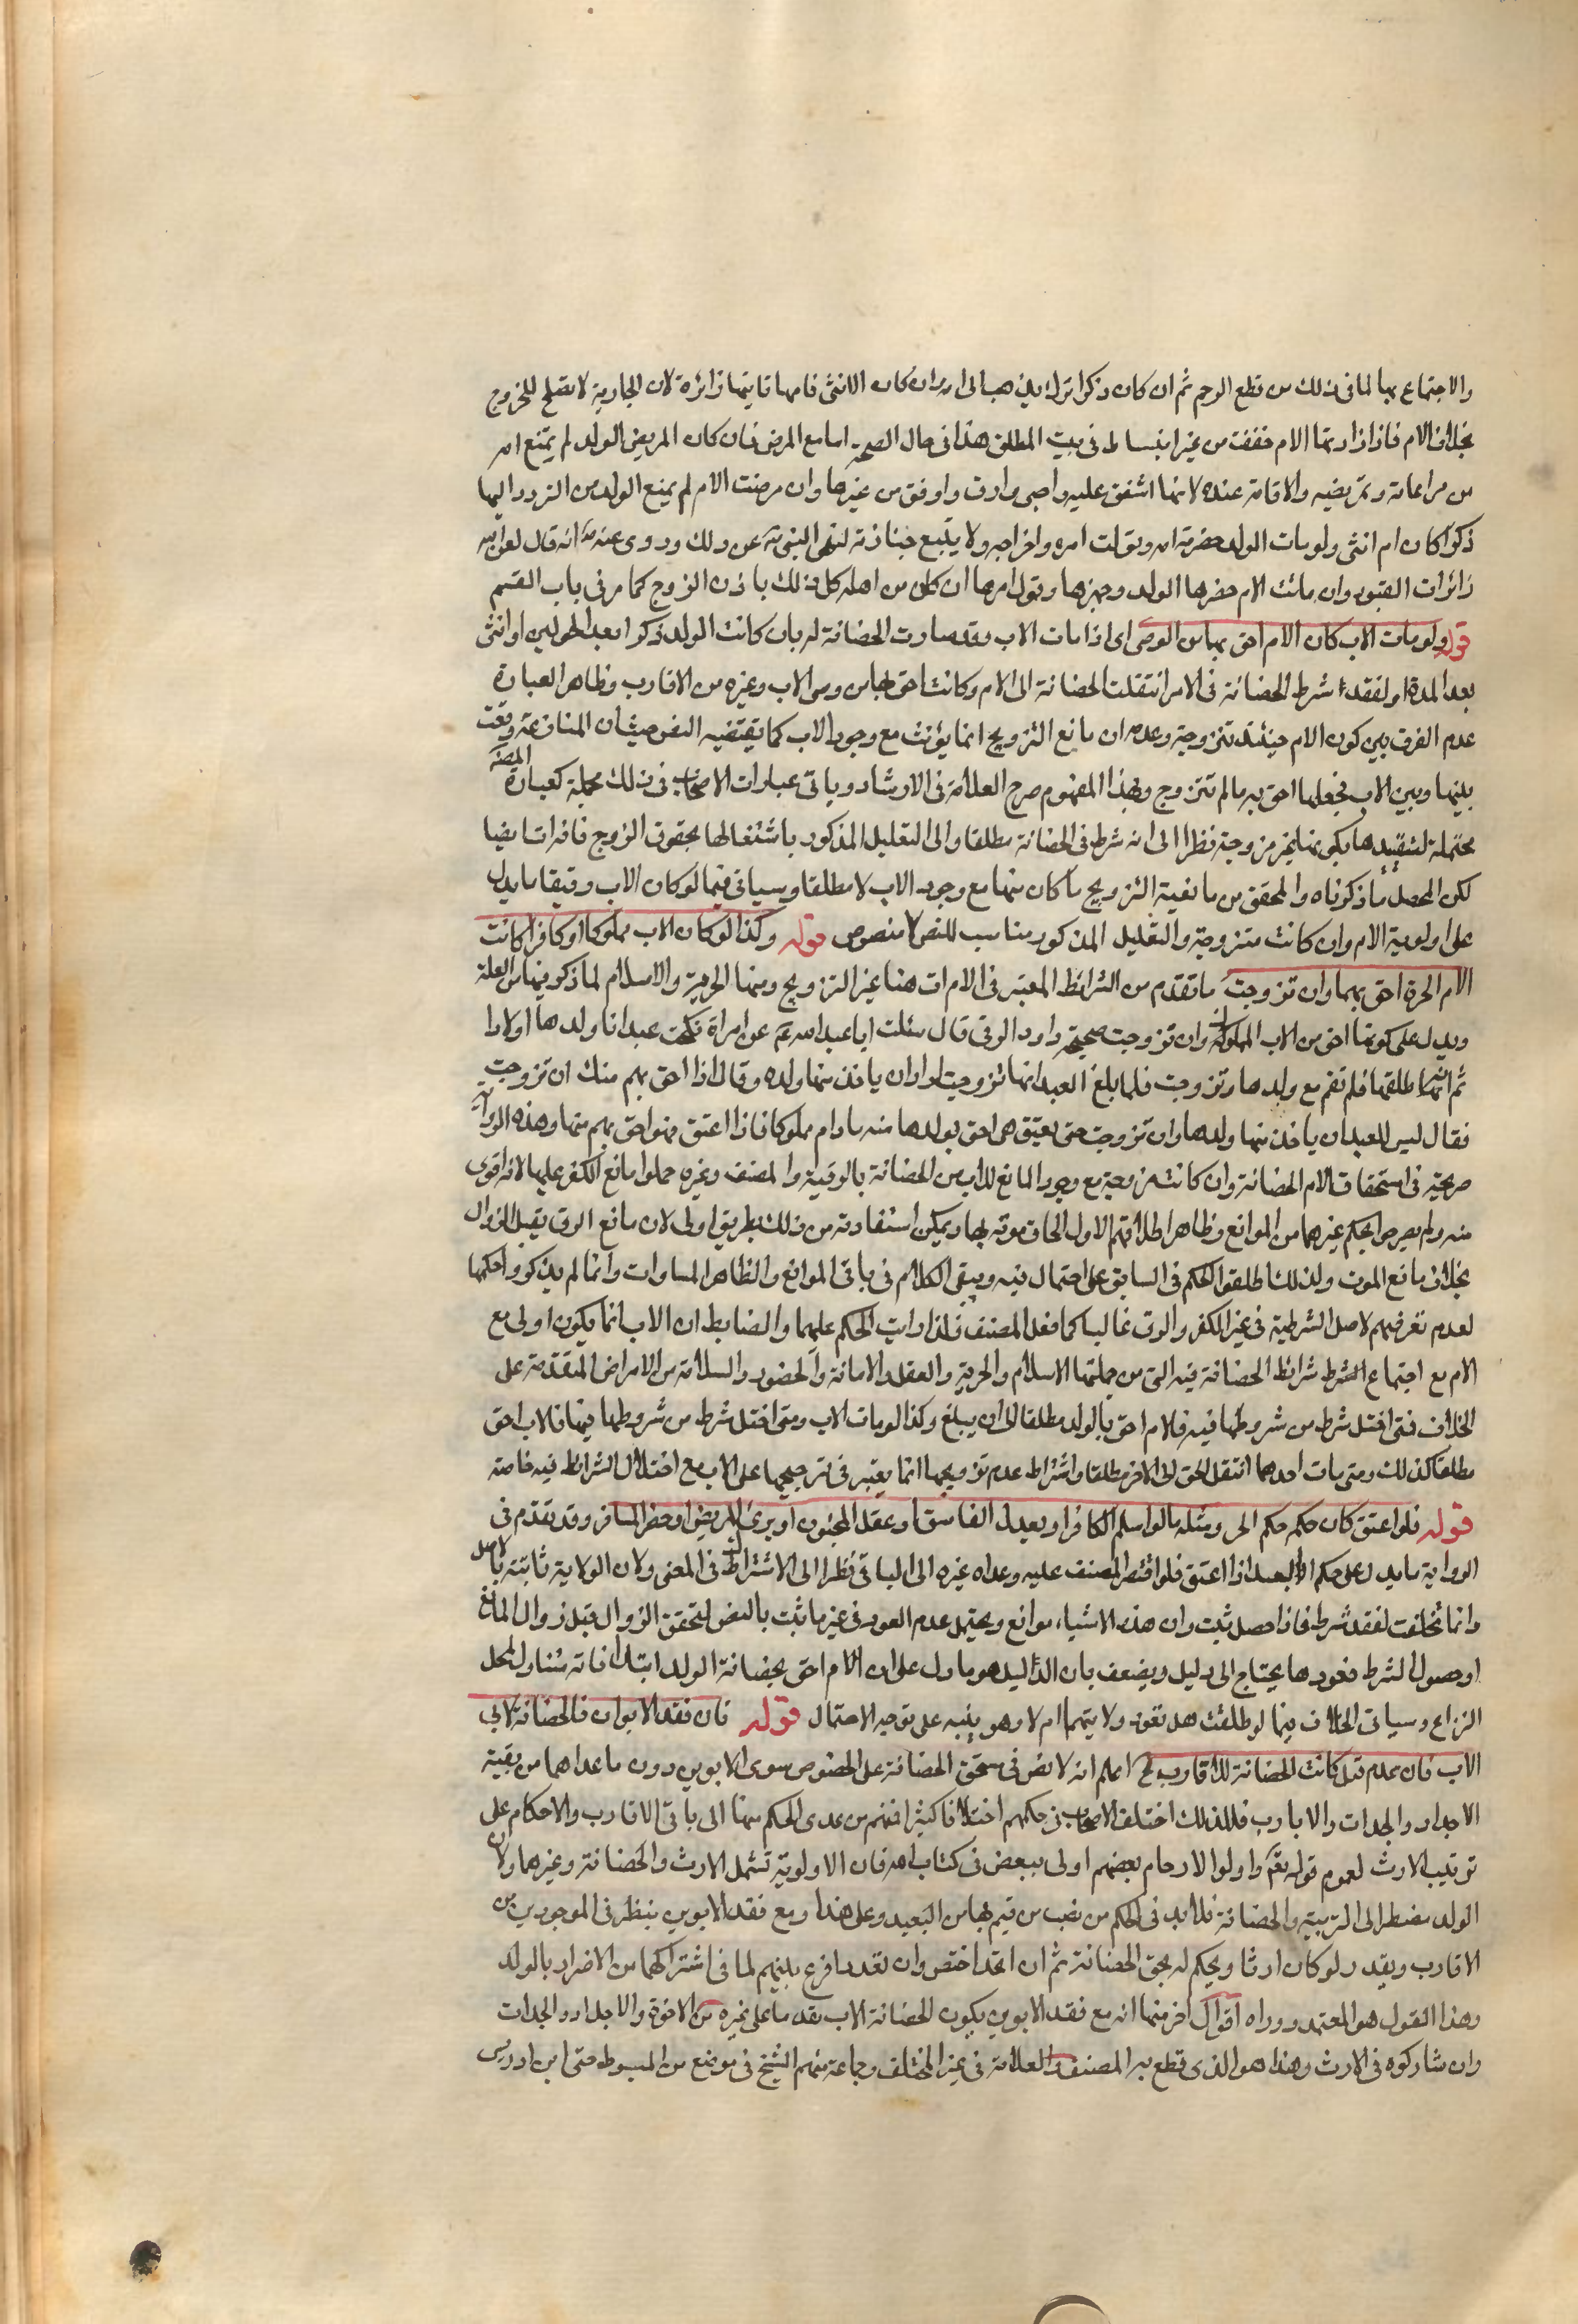 والاجتماع بها لما فى ذلك من قطع الرحم ثم ان كان ذكرا ترك يذهب الى امه وان كان الانثى فامها تاتيها زائرة لان الجارية لا تصلح للخروج
بخلاف الام فاذا زارتها الام خففت من غير انبساط فى بيت المطلق هذا فى حال الصحة اما مع المرض فان كان المريض الولد لم يمنع امه
من مراعاته وتمريضه والاقامة عنده لانها اشفق عليه واحبى وارق واوفق من غيرها وان مرضت الام لم يمنع الولد من التردد اليها
ذكرا كان ام انثى ولو مات الولد حضرته امه وتولت امره واخراجه ولا يتبع جنازته لنهى النبى ص عن ذلك وروى عنه ص انه قال لعن الله
زائرات القبور وان ماتت الام حضرها الولد وجهزها وتولى امرها ان كان من اهله كل ذلك باذن الزوج كما مر فى باب القسم
قوله ولو مات الاب كان الام احق بهما من الوصى اى اذا مات الاب وقد صارت الحضانة له بان كانت الولد ذكرا بعد الحولين او انثى
بعد المدة او لفقد شرط الحضانة فى الام انتقلت الحضانة الى الام وكانت احق بها من وصى الاب وغيره من الاقارب وظاهر العبارة
عدم الفرق بين كون الام حينئذ متزوجة وعدمه ان مانع التزويج انما يؤثر مع وجود الاب كما يقتضيه النصوص حيث ان المنازعة وقعت
بينهما وبين الاب فجعلها احق به مالم تتزوج وبهذا المفهوم صرح العلامة فى الارشاد وباقى عبارات الاصحاب فى ذلك مجملة كعبارة المصنف
محتملة لتقييدها بكونها غير مزوجة نظرا الى انه شرط فى الحضانة مطلقا والى التعليل المذكور باشتغالها بحقوق الزوج فانه ات ايضا
لكن المحصل ما ذكرناه والمحقق من مانعية التزويج ما كان منها مع وجود الاب لا مطلقا وسياتى فيما لو كان الاب رقيقا ما يدل
على اولوية الام وان كانت متزوجة والتعليل المذكور مناسب للنص لا منصوص قوله وكذا لو كان الاب مملوكا او كافرا كانت
الام الحرة احق بهما وان تزوجت ما تقدم من الشرائط المعتبر فى الام ات هنا غير التزويج ومنها الحرية والاسلام لما ذكر فيها من العلة
ويدل على كونها احق من الاب المملوك وان تزوجت صحيحة داود الرقى قال سئلت ابا عبد الله ع عن امراة نكحت عبدا فاولدها اولادا
ثم انه طلقها فلم تقم مع ولدها وتزوجت فلما بلغ العبد انها تزوجت اراد ان ياخذ منها ولده وقال انا احق بهم منك ان تزوجت
فقال ليس للعبد ان ياخذ منها ولدها وان تزوجت حتى يعتق هى احق بولدها منه ما دام مملوكا فاذا اعتق فهو احق بهم منها وهذه الرواية
صريحة فى استحقاق الام الحضانة وان كانت مزوجة مع وجود المانع للاب من الحضانة بالرقية والمصنف وغيره حملوا مانع الكفر عليها لانه اقوى
منه ولم يصرحوا بحكم غيرهما من الموانع وظاهر اطلاقهم الاول الحاق موته بها ويمكن استفادته من ذلك بطريق اولى لان مانع الرق يقبل الزوال
بخلاف مانع الموت ولذلك اطلقوا الحكم فى السابق على احتمال فيه ويبقى الكلام فى باقى الموانع والظاهر المساوات وانما لم يذكروا حكمها
لعدم تعرضهم لاصل الشرطية فى غير الكفر والرق غالبا كما فعل المصنف فلذا رتب الحكم عليهما والضابط ان الاب انما يكون اولى مع
الام مع اجتماع الشرط شرائط الحضانة فيه التى من جملتها الاسلام والحرية والعقل والامانة والحضور والسلامة من الامراض المتقدمة على
الخلاف فمتى اختل شرط من شروطها فيه فالام احق بالولد مطلقا الى ان يبلغ وكذا لو مات الاب ومتى اختل شرط من شروطها فيها فالاب احق
مطلقا كذلك ومتى مات احدهما انتقل الحق الى الاخر مطلقا واشتراط عدم تزويجها انما يعتبر فى ترجيحها على الاب مع اختلال الشرائط فيه خاصة
قوله فلو اعتق كان حكمه حكم الحر ومثله ما لو اسلم الكافر او يعدل الفاسق او عقل المجنون او برئ المريض او حضر المسافر وقد تقدم فى
الرواية ما يدل على حكم العبد اذا اعتق فلو اقتصر المصنف عليه وعداه غيره الى الباقى نظرا الى الاشتراك فى المعنى ولان الولاية ثابتة بالاصل
وانما تخلفت لفقد شرط فاذا حصل ثبت وان هذه الاشياء موانع ويحتمل عدم العود فى غير ما ثبت بالنص لتحقق الزوال قبل زوال المانع
او حصول الشرط فعودها يحتاج الى دليل ويضعف بان الدليل هو ما دل على ان الام احق بحضانة الولد ابتداء فانه متناول لمحل
النزاع وسياتى الخلاف فيما لو طلقت هل تعود ولايتها ام لا وهو ينبه على توجيه الاحتمال قوله فان فقد الابوان فالحضانة لابى
الاب فان عدم قيل كانت الحضانة للاقارب الخ اعلم انه لا نص فى مستحق الحضانة على الخصوص سوى الابوين دون ما عداهما من بقية
الاجداد والجدات والاقارب فلذلك اختلف الاصحاب فى حكمهم اختلافا كثيرا فمنهم من عدى الحكم منها الى باقى الاقارب والاحكام على
ترتيب الارث لعموم قوله تعالى واولوا الارحام بعضهم اولى ببعض فى كتاب الله فان الاولوية تشمل الارث والحضانة وغيرهما ولان
الولد مضطر الى التربية والحضانة فلا بد فى الحكم من نصب من قيم بها من البعيد وعلى هذا ومع فقد الابوين ينظر فى الموجودين من
الاقارب ويقدر لو كان ارثا ويحكم له بحق الحضانة ثم ان اتحد اختص وان تعدد اقرع بينهم لما فى اشتراكهما من الاضرار بالولد
وهذا القول هو المعتمد ووراه اقوال اخر منها انه مع فقد الابوين يكون الحضانة الاب يقدما على غيره من الاخوة والاجداد والجدات
وان شاركوه فى الارث وهذا هو الذى قطع به المصنف والعلامة فى غير المختلف وجماعة منهم الشيخ فى موضع من المبسوط حتى ابن ادريس